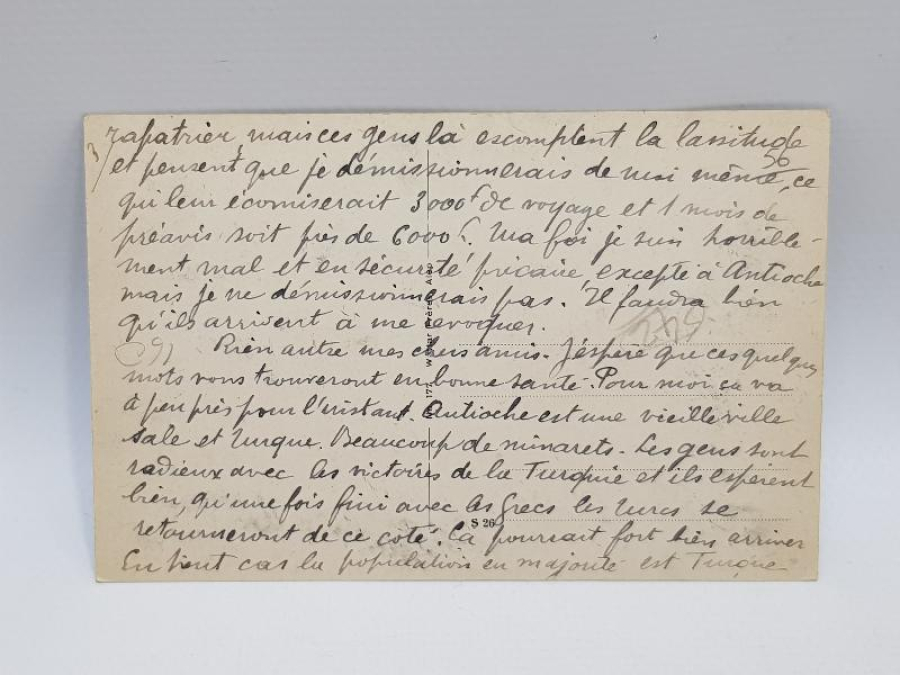 3/ rapatrier, mais ces gens là escomptent la lassitude
et pensent que je démissionnerais de moi même, ce
56
qui leur écomiserait 3000f de voyage et 1 mois de
préavis soit près de 6000f. Ma foi je suis horrible-
ment mal et en sécurité précaire excepté à Antioche
mais je ne démissionnerais pas. Il faudra bien
qu'ils arrivent à me revoquer.
Rien autre mes chers amis. J'éspère que ces quelques
mots vous trouveront en bonne santé. Pour moi ça va
à peu près pour l'instant. Antioche est une vieille ville
sale et turque. Beaucoup de minarets. Les gens sont
radieux avec les victoires de la Turquie et ils espèrent
bien, qu'une fois fini avec les Grecs les turcs se
retourneront de ce coté. Ca pourrait fort bien arriver
En tout cas la population en majorité est Turque
Frères Alep
S 26